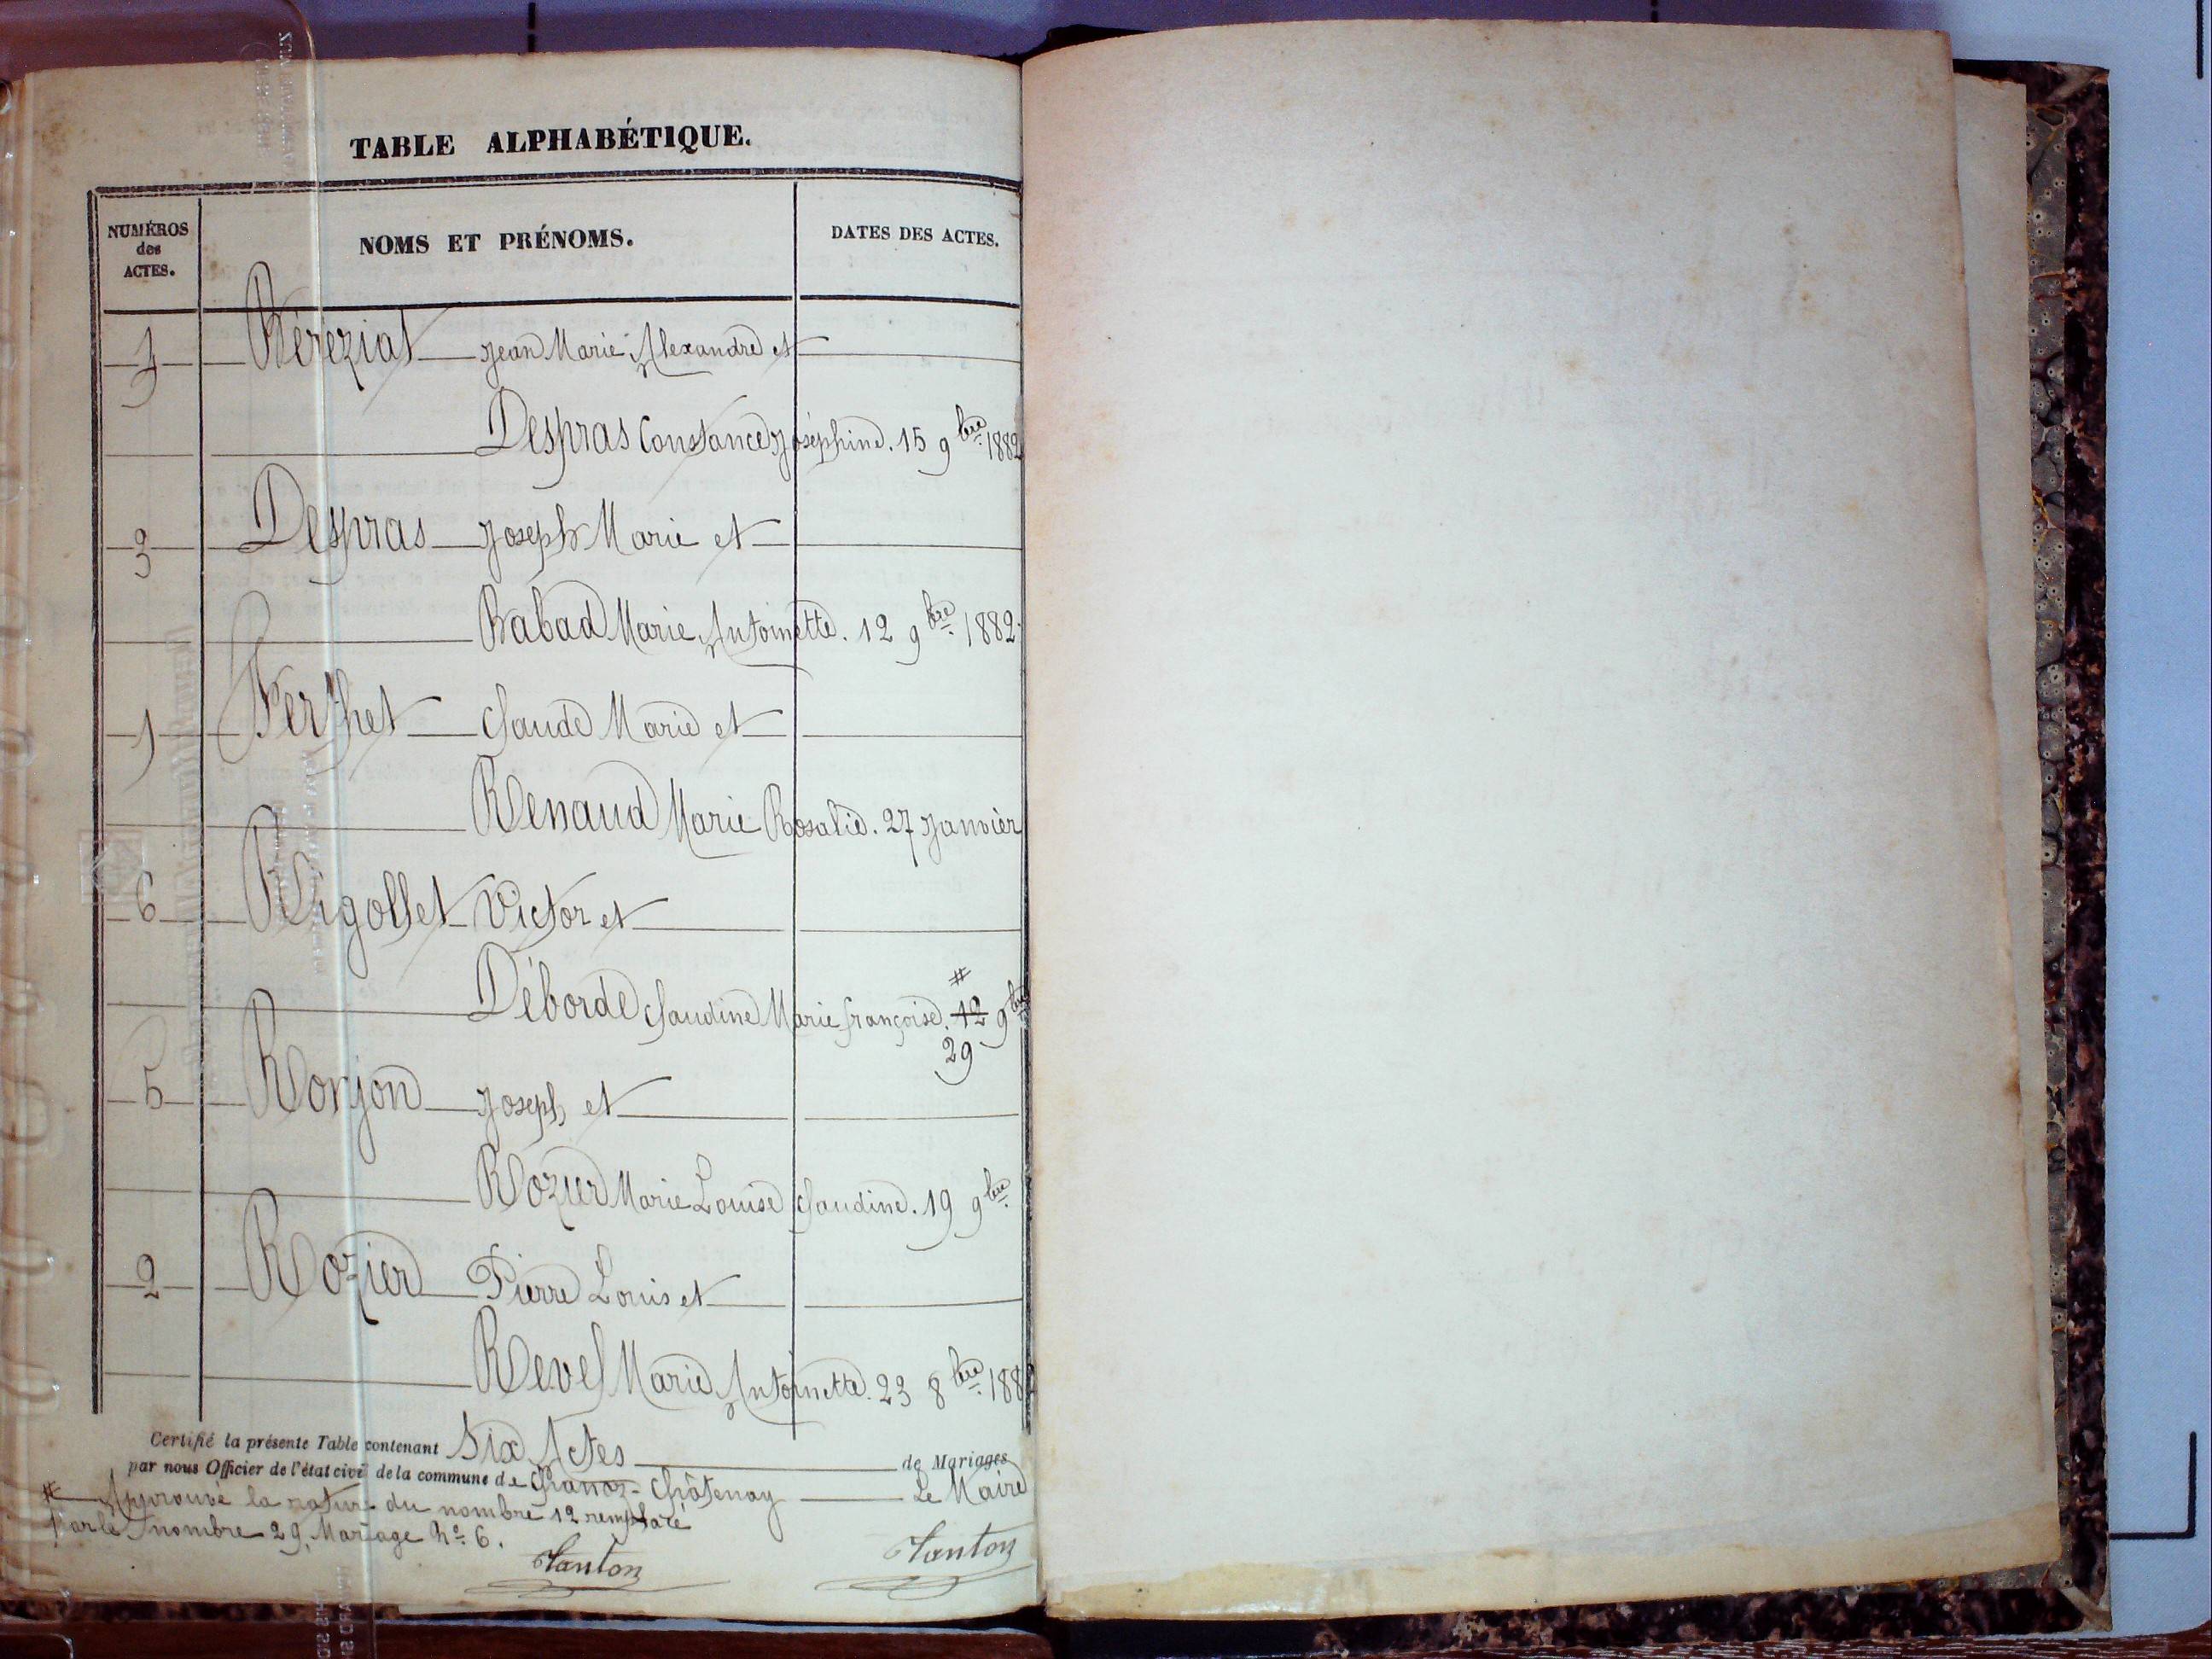 TABLE ALPHABÉTIQUE.
NUMÉROS
des
ACTES.
NOMS ET PRÉNOMS.
DATES DES ACTES.
Jean Marie Alexandre et
Despras Constance Joséphine. 15 9bre 1882
3 Despras Joseph Marie et
Rabad Marie Antoinette. 12 9bre 1882.
1 Ferthet Claude Marie et
Renaud Marie Rosalie. 27 Janvier
6 Rigollet Victor et
#
Déborde Claudine Marie françoise. 12 9bre
29
5 Rorjon Joseph et
Rozier Marie Louise Claudine. 19 9bre
2 Rozier Pierre Louis et
Revel Marie Antoinette. 23 8bre 1882
Certifié la présente Table contenant Six Actes de Mariages
par nous Officier de l'état civil de la commune de Chanoz-Châtenay Le Maire
# Approuvé la rature du nombre 12 remplacé
par le nombre 29. Mariage No 6.
Tanton Tanton